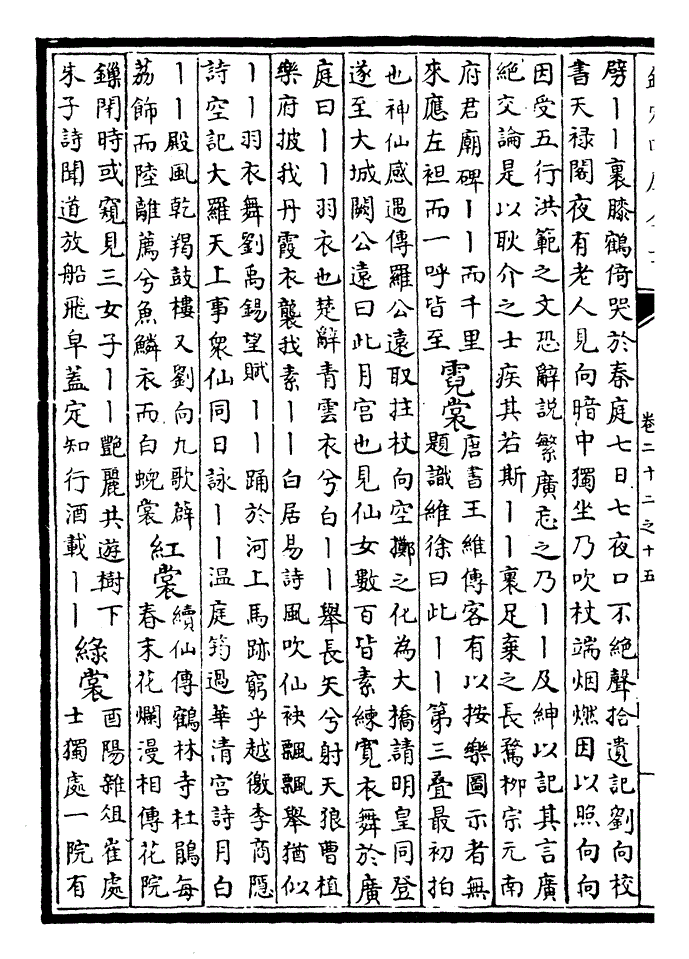 卷二十二之十五
劈丨丨裏膝鶴倚哭於秦庭七日七夜口不絶聲拾遺記劉向校
書天禄閣夜有老人見向暗中獨坐乃吹杖端烟燃因以照向向
因受五行洪範之文恐辭說繁廣忘之乃丨丨及紳以記其言廣
絶交論是以耿介之士疾其若斯丨丨裹足棄之長騖柳宗元南
府君廟碑丨丨而千里
來應左袒而一呼皆至
霓裳
唐書王維傳客有以按樂圖示者無
題識維徐曰此丨丨第三疊最初拍
也神仙感遇傳羅公遠取拄杖向空擲之化為大橋請明皇同登
遂至大城闕公遠曰此月宫也見仙女數百皆素練寛衣舞於廣
庭曰丨丨羽衣也楚辭青雲衣兮白丨丨舉長矢兮射天狼曹植
樂府披我丹霞衣襲我素丨丨白居易詩風吹仙袂飄飄舉猶似
丨丨羽衣舞劉禹錫望賦丨丨踊於河上馬跡窮乎越徼李商隠
詩空記大羅天上事衆仙同日詠丨丨温庭筠過華清宫詩月白
丨丨殿風乾羯鼓樓又劉向九歌薜
荔飾而陸離薦兮魚鱗衣而白蜺裳
紅裳
續仙傳鶴林寺杜鵑每
春末花爛漫相傳花院
鏁閉時或窺見三女子丨丨艷麗共遊樹下
朱子詩聞道放船飛皁蓋定知行酒載丨丨
緑裳
酉陽雜俎崔處
士獨處一院有